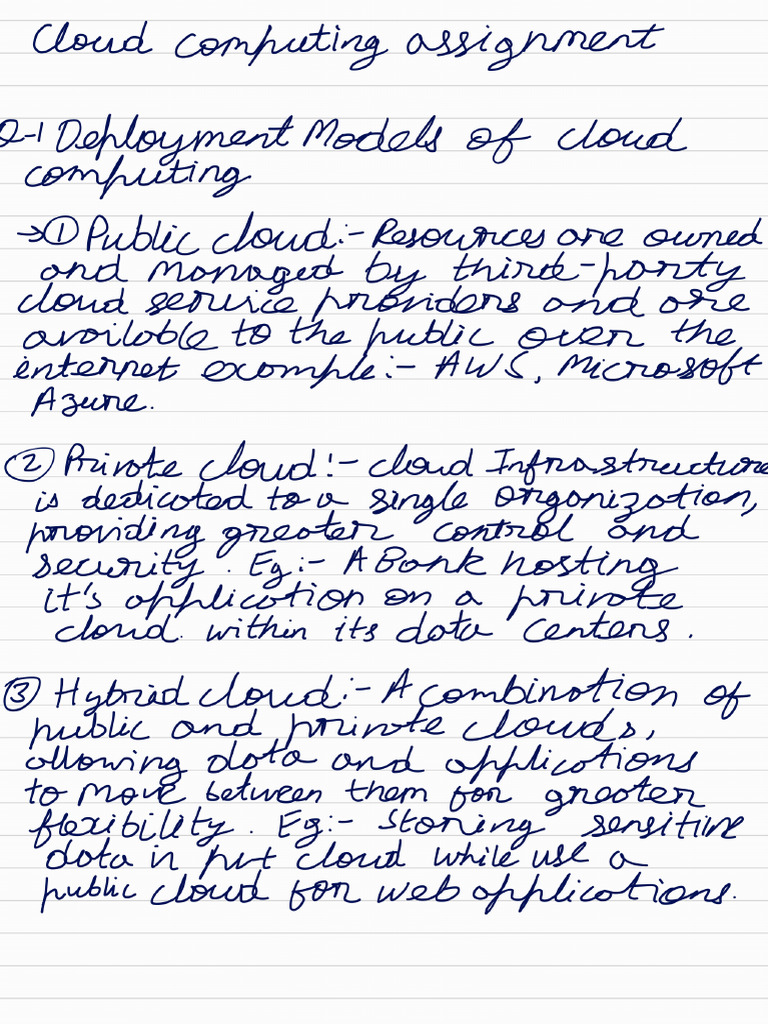 Cloud computing assignment
Q-1 Deployment Models of cloud
computing
→① Public cloud:- Resources are owned
and managed by third-party
cloud service providers and are
available to the public over the
internet example:- AWS, Microsoft
Azure.
② Private cloud:- cloud Infrastructure
is dedicated to a single organization,
providing greater control and
security. Eg:- A Bank hosting
it's application on a private
cloud within its data centers.
③ Hybrid cloud:- A combination of
public and private clouds,
allowing data and applications
to move between them for greater
flexibility. Eg:- Storing sensitive
data in pvt cloud while use a
public cloud for web applications.